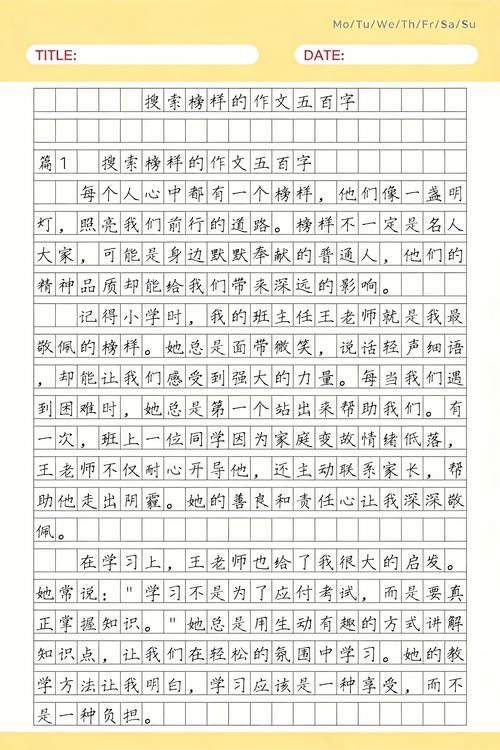 Mo/Tu/We/Th/Fr/Sa/Su
TITLE: DATE:
搜索榜样的作文五百字
篇1 搜索榜样的作文五百字
每个人心中都有一个榜样，他们像一盏明
灯，照亮我们前行的道路。榜样不一定是名人
大家，可能是身边默默奉献的普通人，他们的
精神品质却能给我们带来深远的影响。
记得小学时，我的班主任王老师就是我最
敬佩的榜样。她总是面带微笑，说话轻声细语
，却能让我们感受到强大的力量。每当我们遇
到困难时，她总是第一个站出来帮助我们。有
一次，班上一位同学因为家庭变故情绪低落，
王老师不仅耐心开导他，还主动联系家长，帮
助他走出阴霾。她的善良和责任心让我深深敬
佩。
在学习上，王老师也给了我很大的启发。
她常说："学习不是为了应付考试，而是要真
正掌握知识。"她总是用生动有趣的方式讲解
知识点，让我们在轻松的氛围中学习。她的教
学方法让我明白，学习应该是一种享受，而不
是一种负担。